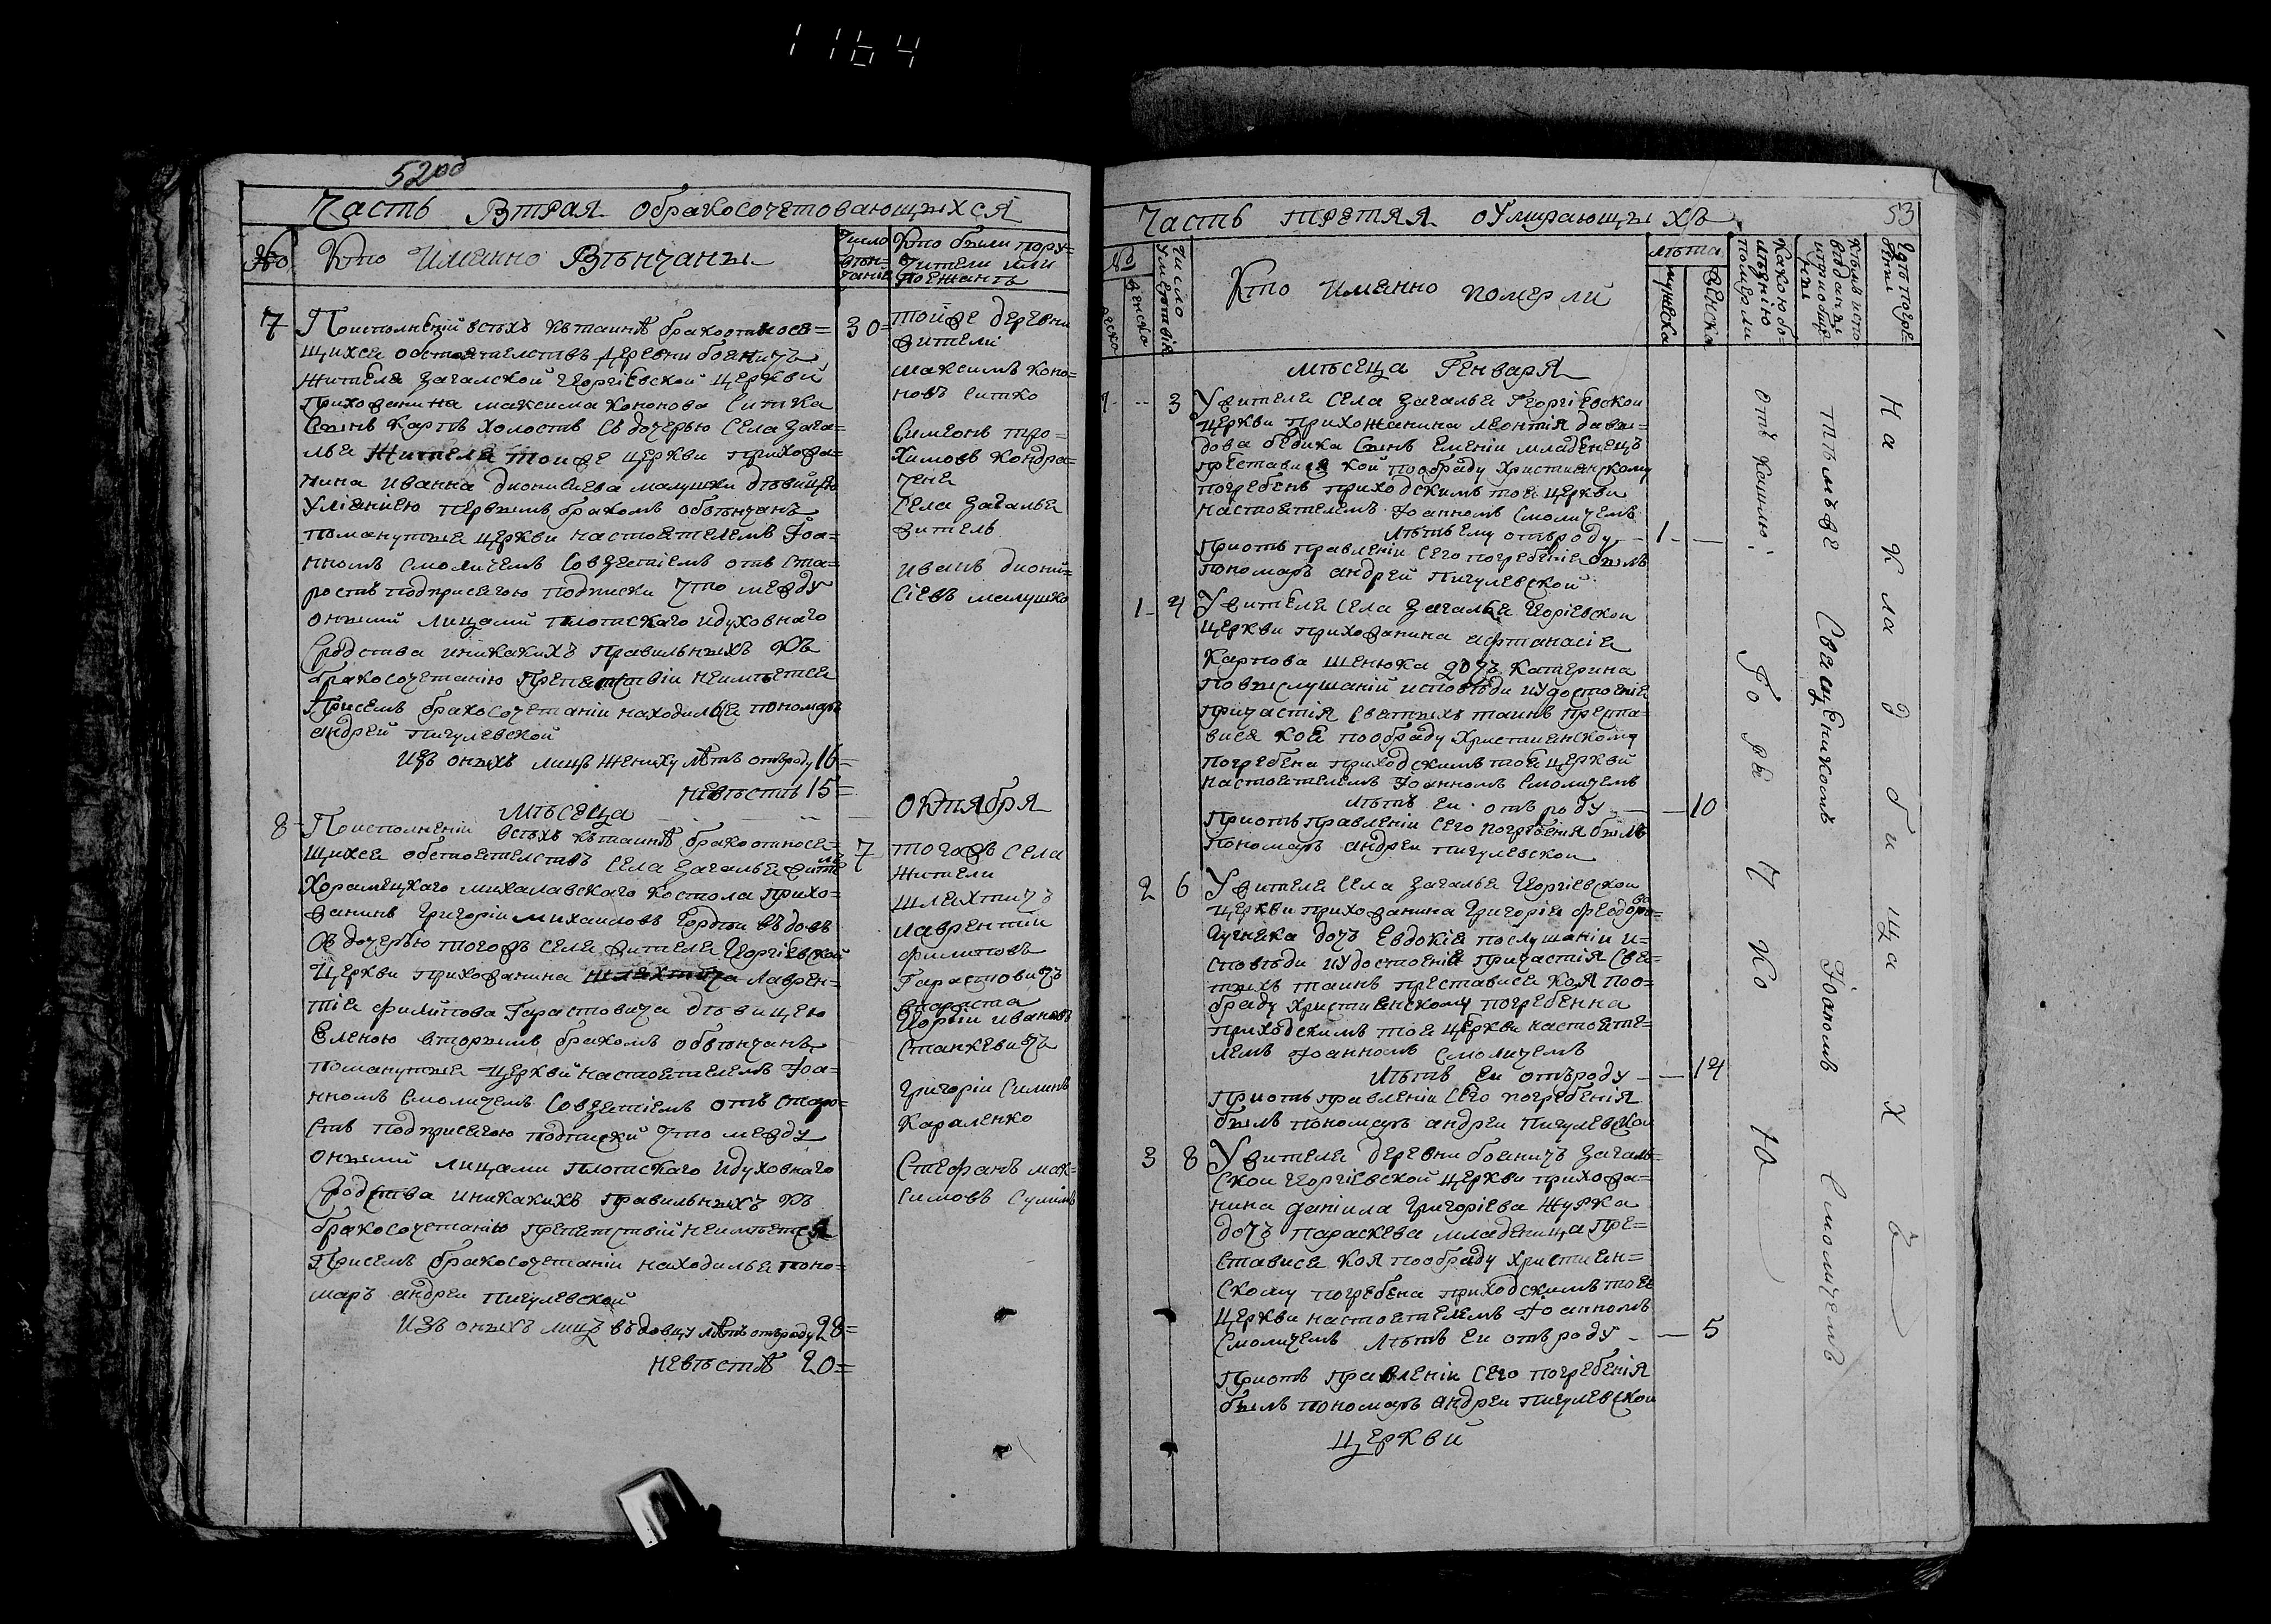 1164
52об
Часть Втрая обракосочетовающыхся
№
Кто Именно Втьнчаны
Число втьн-чаниe
Кто были пору-чители или поезжанть
7
Поисполнении встьхъ ктаинтѣ бракоотносе=
щихся обстоятелствъ деревни боеничъ
жителя загалской Георгіевской церкви
прихожанина максима кононова Ситка
Сынъ Карпъ холостъ съ дочерью Села Зага-
лья жителя тоиже церкви прихожа-
нина иванна дионисиева малушки дтьвицею
Улiяниею первымъ бракомъ обвтьнчанъ
помянутыя церкви настоятелемъ Іоа-
нномъ Смоличемъ Совзетіемъ отъ Ста-
ростъ подприсягою подписки Что между
оными лицами плотскаго идуховнаго
Сродства иникакихъ правильныхъ къ
бракосочетанію препятствіи неимтьется
Присемъ бракосочетаніи находилься пономарь
андрей пигулевской
Изъ оныхъ лицъ жениху лтьтъ отъроду 16=
невтьстѣ 15=
30=
тойже деревни
жители
максимъ коно=
новъ ситко
Симеонъ тро=
химовъ кондра=
теня
Села Загалья
житель
иванъ диони=
сіевъ малушко
Мтьсеца
Октября
8
Поисполнении встьхъ ктаинтѣ бракоотносе=
щихся обстоятелствъ Села Загалья жителя
Хорамецкаго михалавскаго костола прихо=
жанинъ Григорій михаиловъ Гордти въдовъ
Съ дочерью тогожъ села жителя Георгіевской
Церкви прихожанина шляхтича Лаврен=
тія филипова Гарастовича дтьвицею
Еленою вторымъ бракомъ обвтьнчанъ
помянутыя церкви настоятелемъ Іоа-
нномъ Смоличемъ Совзетіемъ отъ Старо=
стъ подприсягою подписки Что между
оными лицами плотскаго идуховнаго
Сродства иникакихъ правильныхъ къ
бракосочетанію препятствій неимтьется
Присемъ бракосочетаніи находилья поно=
марь андреи пигулевской
Изъ оныхъ лицъ въдовцу лтьтъ отъроду 28=
невтьстѣ 20=
7
тогожъ села
жители
шляхтичъ
лаврентіи
филиповъ
Гарастовичъ
Иорьіи ивановъ
Станкевичъ
Григоріи Силинъ
Караленко
Стефанъ мак=
симовъ Сулимъ
53
Часть третяя оУмирающыхъ
№
женска
Число Умертвіе
Кто именно померли
лѣта
мужеска
женска
Какою бо-лезнію померли
ктьмъ испо-вѣданы ипріобще-ны
Гдѣ погре-бены
мѣсеца Генваря
1 3
Ужителя Села Загалья Георгіевской
церкви прихожанина леонтія давы-
дова бедика Сынъ Емеліи младенецъ
преставися кой пообраду Християнскому
погребенъ приходскимъ тоя церкви
настоятелемъ Іоанномъ Смоличемъ
лѣтъ ему отъроду - 1 -
Приотъправленіи Сего погребеніе былъ
пономарь андрей Пигулевской
1 4
Ужителя Села Загалья Георіевской
Церкви прихожанина афтанасіе
Карпова Шенюка дочъ Катерина
повыслушаній исповѣди иудостоеніе
причастія Светыхъ таинъ преста-
вися коя пообраду Християнскому
погребена приходскимъ тоя церкви
настоятелемъ Іоанномъ Смоличемъ
лѣтъ еи отъ роду - 10
Приотъправленіи сего погребенія былъ
пономарь андреи пигулевской
2 6
Ужителя Села Загалья Георгіевской
церкви прихожанина Григорія федоро=
ва
Гугнека дочъ Евдокія послушаніи и=
сповѣди иудостоеніе причастія Све=
тыхъ таинъ преставися коя поо=
браду Християнскому погребенна
приходскимъ тоя церкви настояте=
лемъ Іоанномъ Смоличемъ
лѣтъ еи отъроду - 14
Приотъправленіи Сего погребенія
былъ пономарь андреи Пигулевскои
3 8
Ужителя деревни боеничъ Загаль=
скои Георгіевской церкви прихожа=
нина даніила Григоріева Журка
дочъ параскева младеница пре=
стависе коя пообраду християн=
скому погребена приходскимъ тоее
церкви настоятелемъ Іоанномъ
Смоличемъ лѣтъ еи отъроду - 5
Приотъ правленіи Сего погребенія
былъ пономарь андреи пигулевскои
церкви
отъ кашлю
Горячкою
тѣмъже Свещеникомъ Іоаномъ Смоличемъ
На кладбищахъ